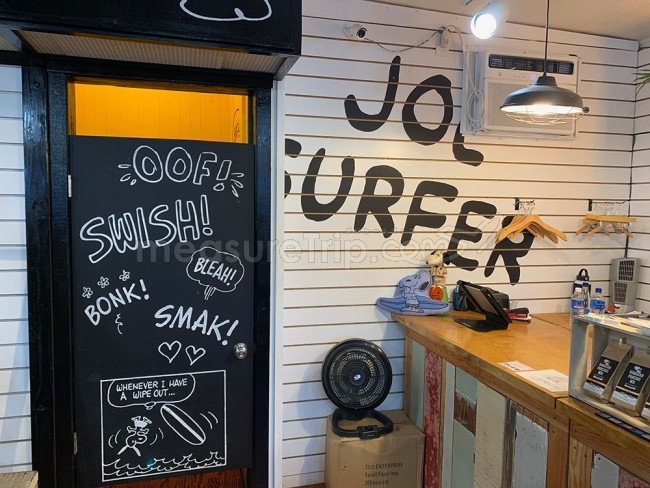 OOF!
SWISH!
BLEAH!
BONK!
SMAK!
WHENEVER I HAVE
A WIPE OUT...
JOE
SURFER
measuretrip.com
ECO ENTERPRISE